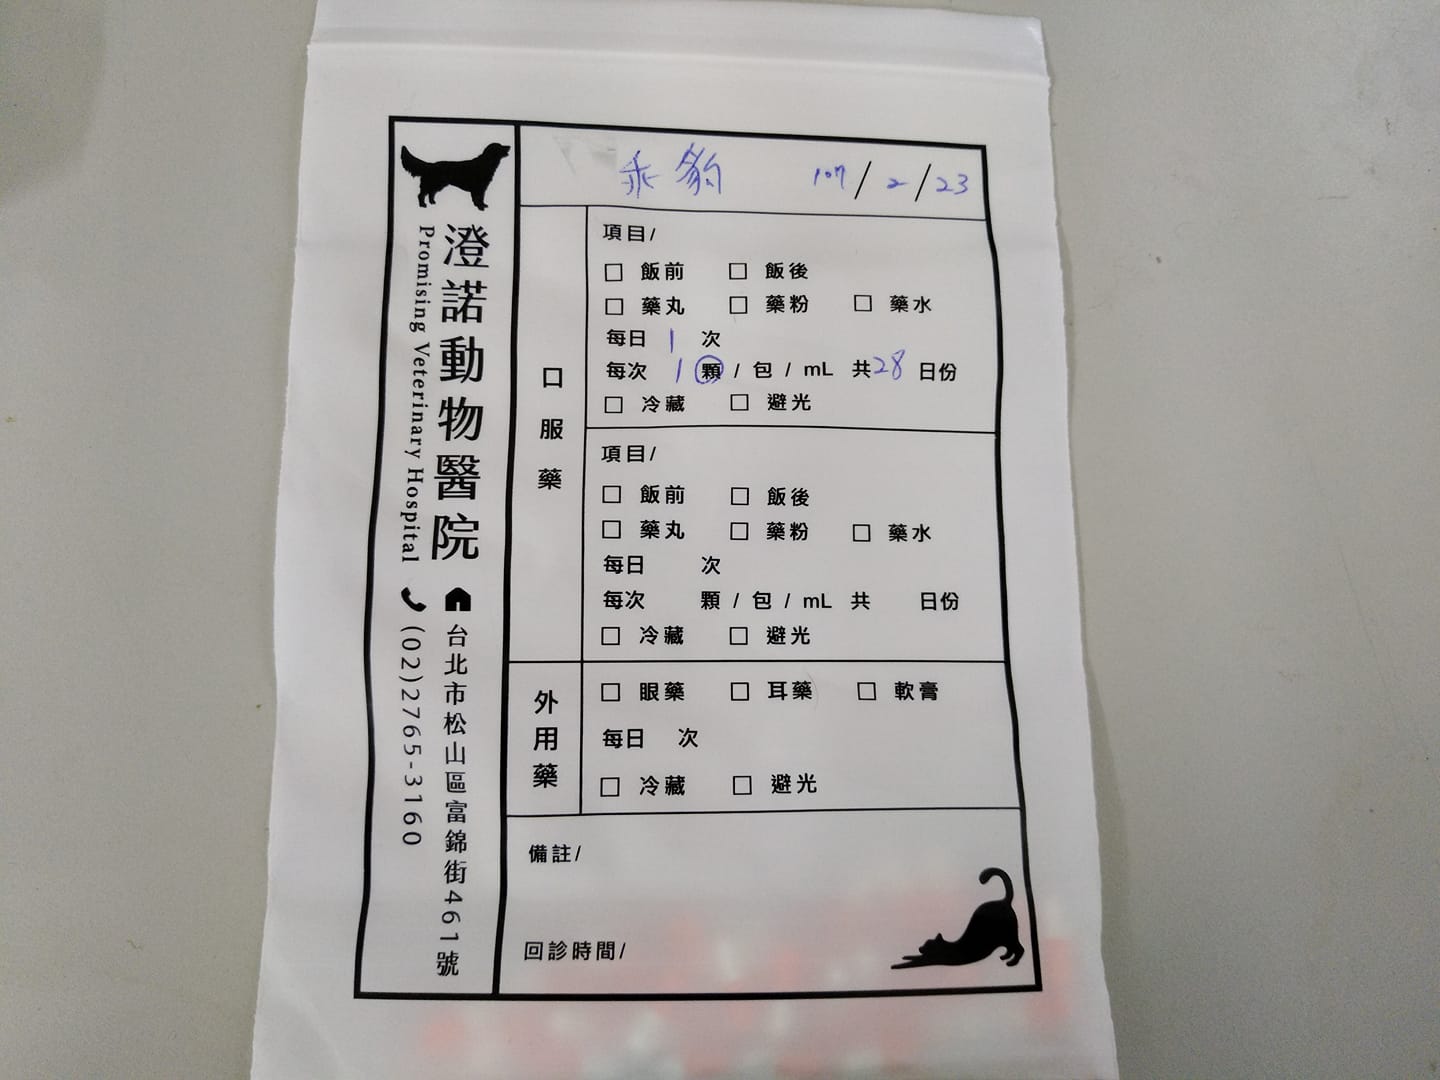 澄諾動物醫院
Promising Veterinary Hospital
台北市松山區富錦街461號
(02)2765-3160
乖豹 107/2/23
口服藥
項目/
□ 飯前 □ 飯後
□ 藥丸 □ 藥粉 □ 藥水
每日 1 次
每次 1 顆 / 包 / mL 共28日份
□ 冷藏 □ 避光
項目/
□ 飯前 □ 飯後
□ 藥丸 □ 藥粉 □ 藥水
每日 次
每次 顆 / 包 / mL 共 日份
□ 冷藏 □ 避光
外用藥
□ 眼藥 □ 耳藥 □ 軟膏
每日 次
□ 冷藏 □ 避光
備註/
回診時間/